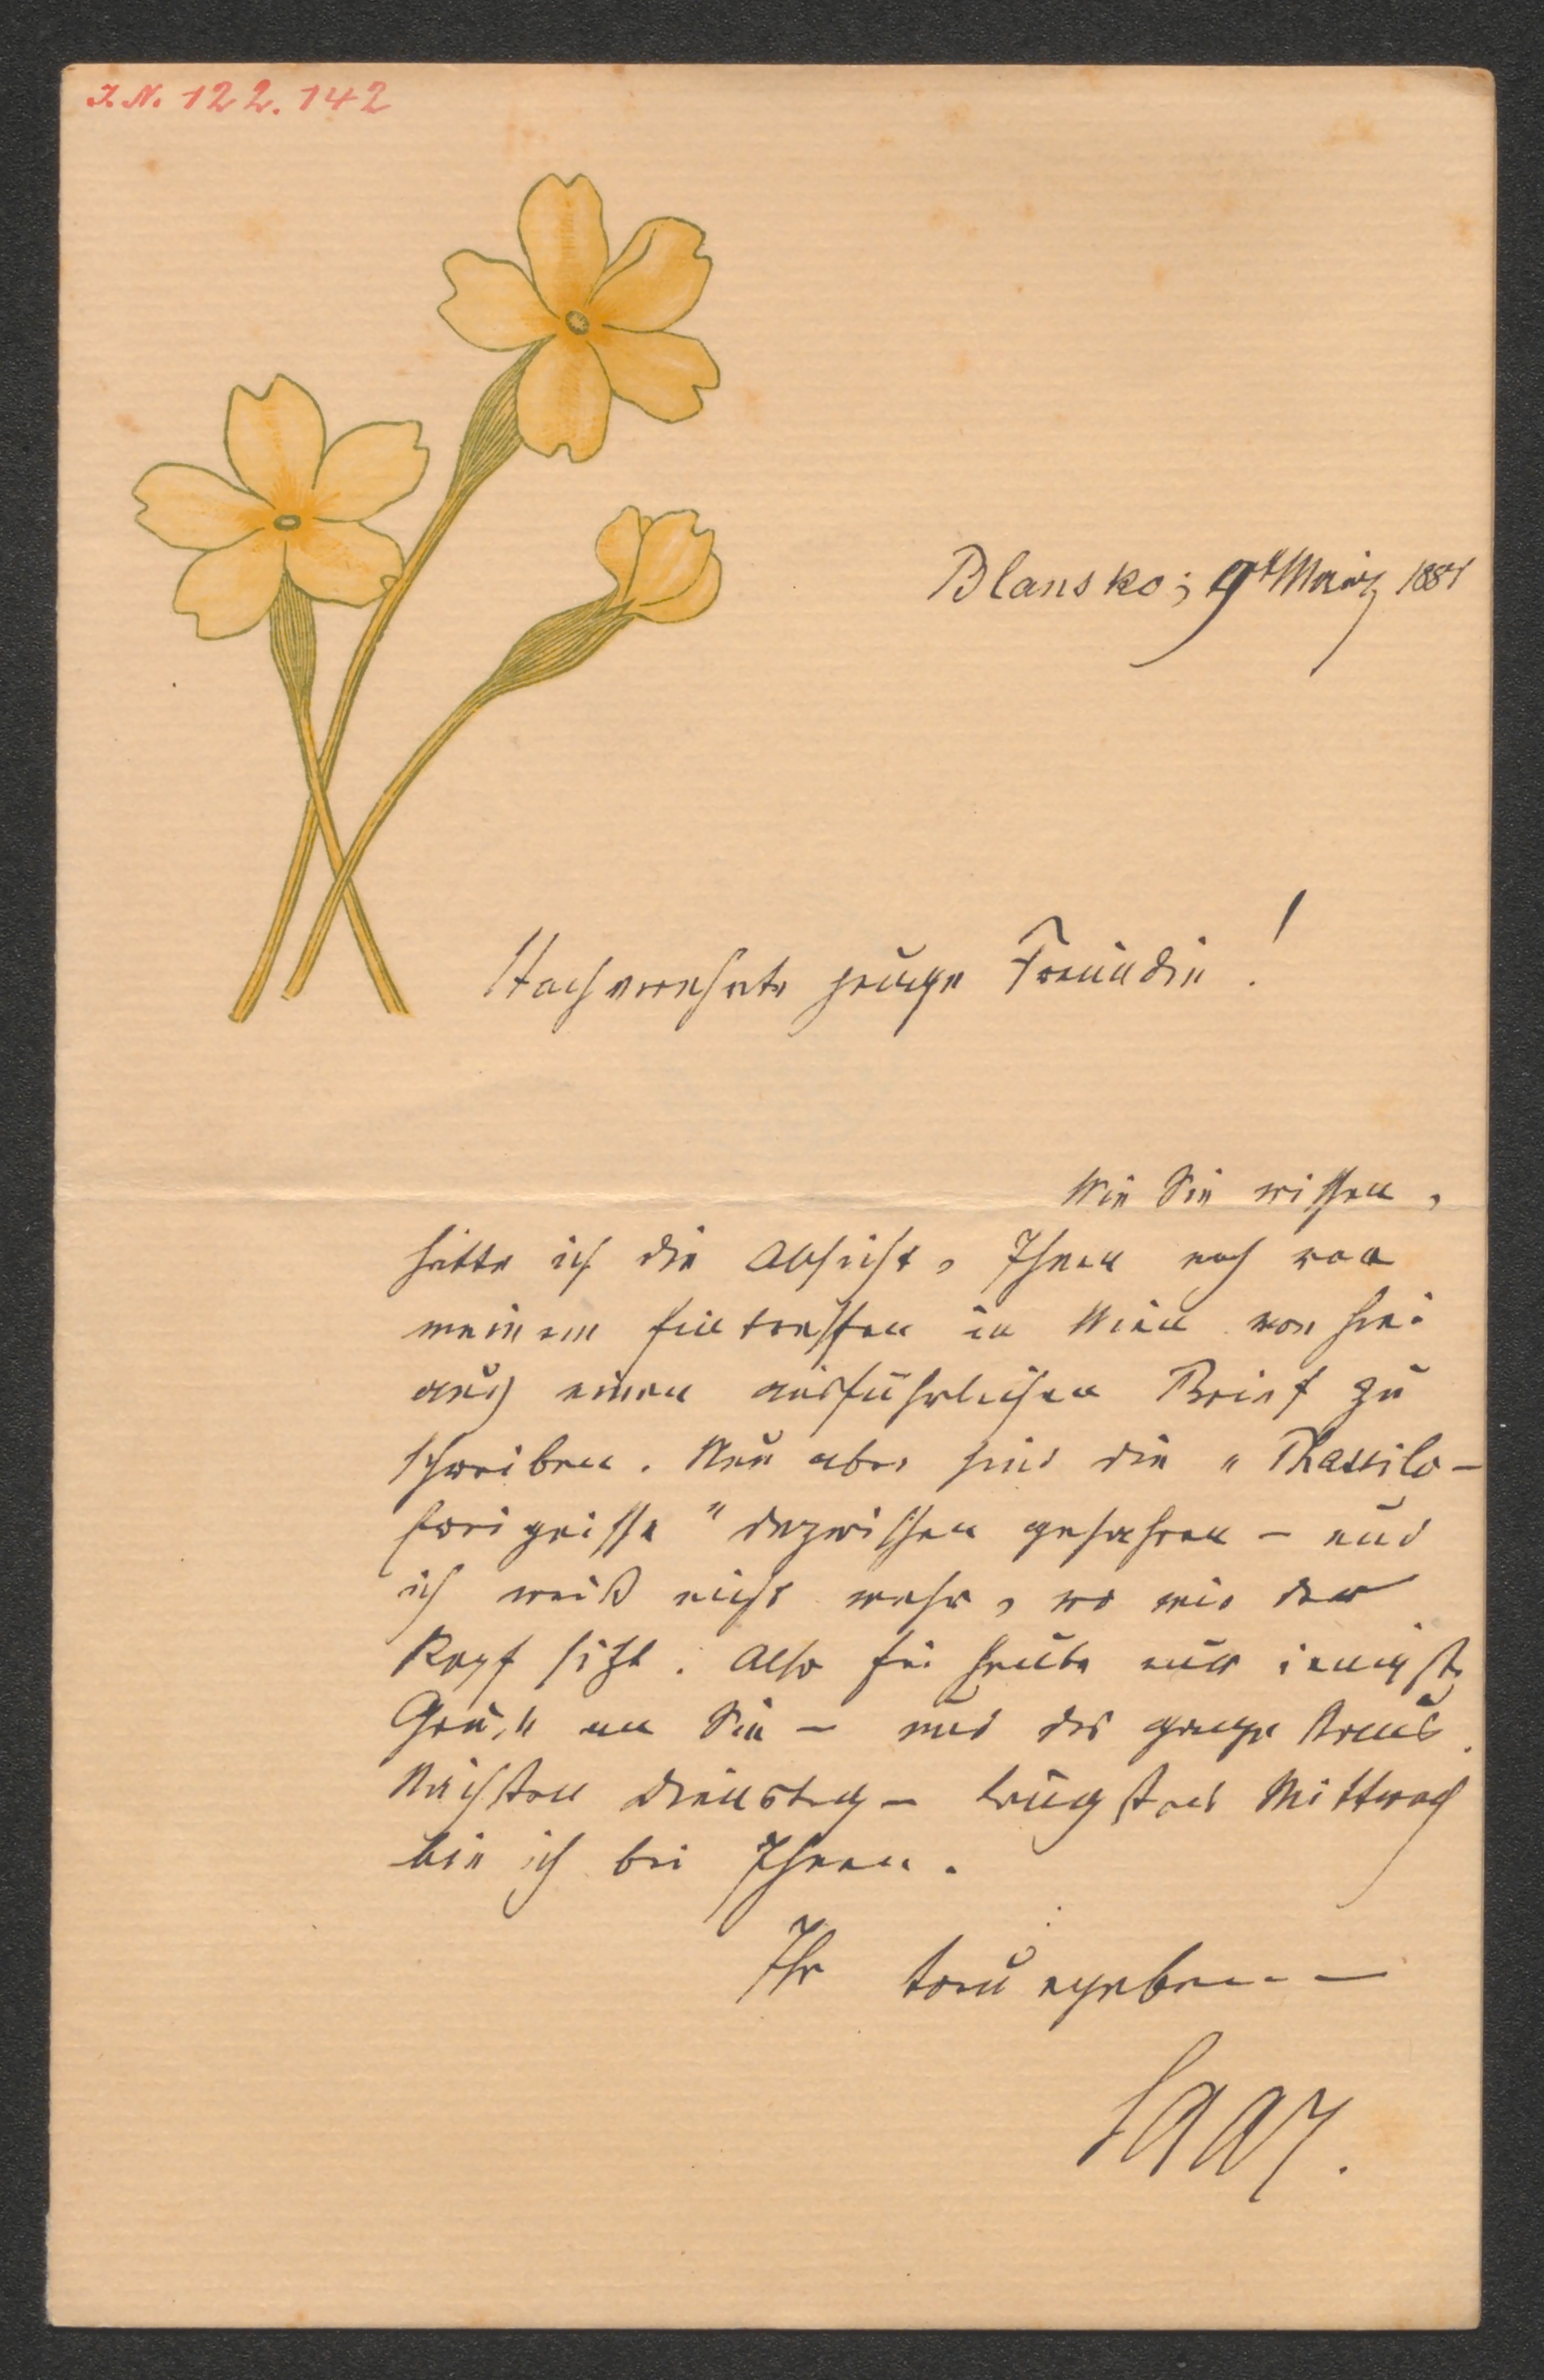 I. N. 122.142
Blansko; 9t März 1881
Hochverehrte Freundin!
Wie Sie wissen,
hatte ich die Absicht, Ihnen noch vor
meinem Eintreffen in Wien von hier
aus einen ausführlichen Brief zu
schreiben. Nun aber sind die „Thassilo-
Ereignisse" dazwischen gefahren – und
ich weiß nicht mehr, wo mir der
Kopf sitzt. Also für heute nur innigste
Grüße an Sie – und das ganze Haus.
Nächsten Dienstag – längstens Mittwoch
bin ich bei Ihnen.
Ihr treu ergebener
Saar.